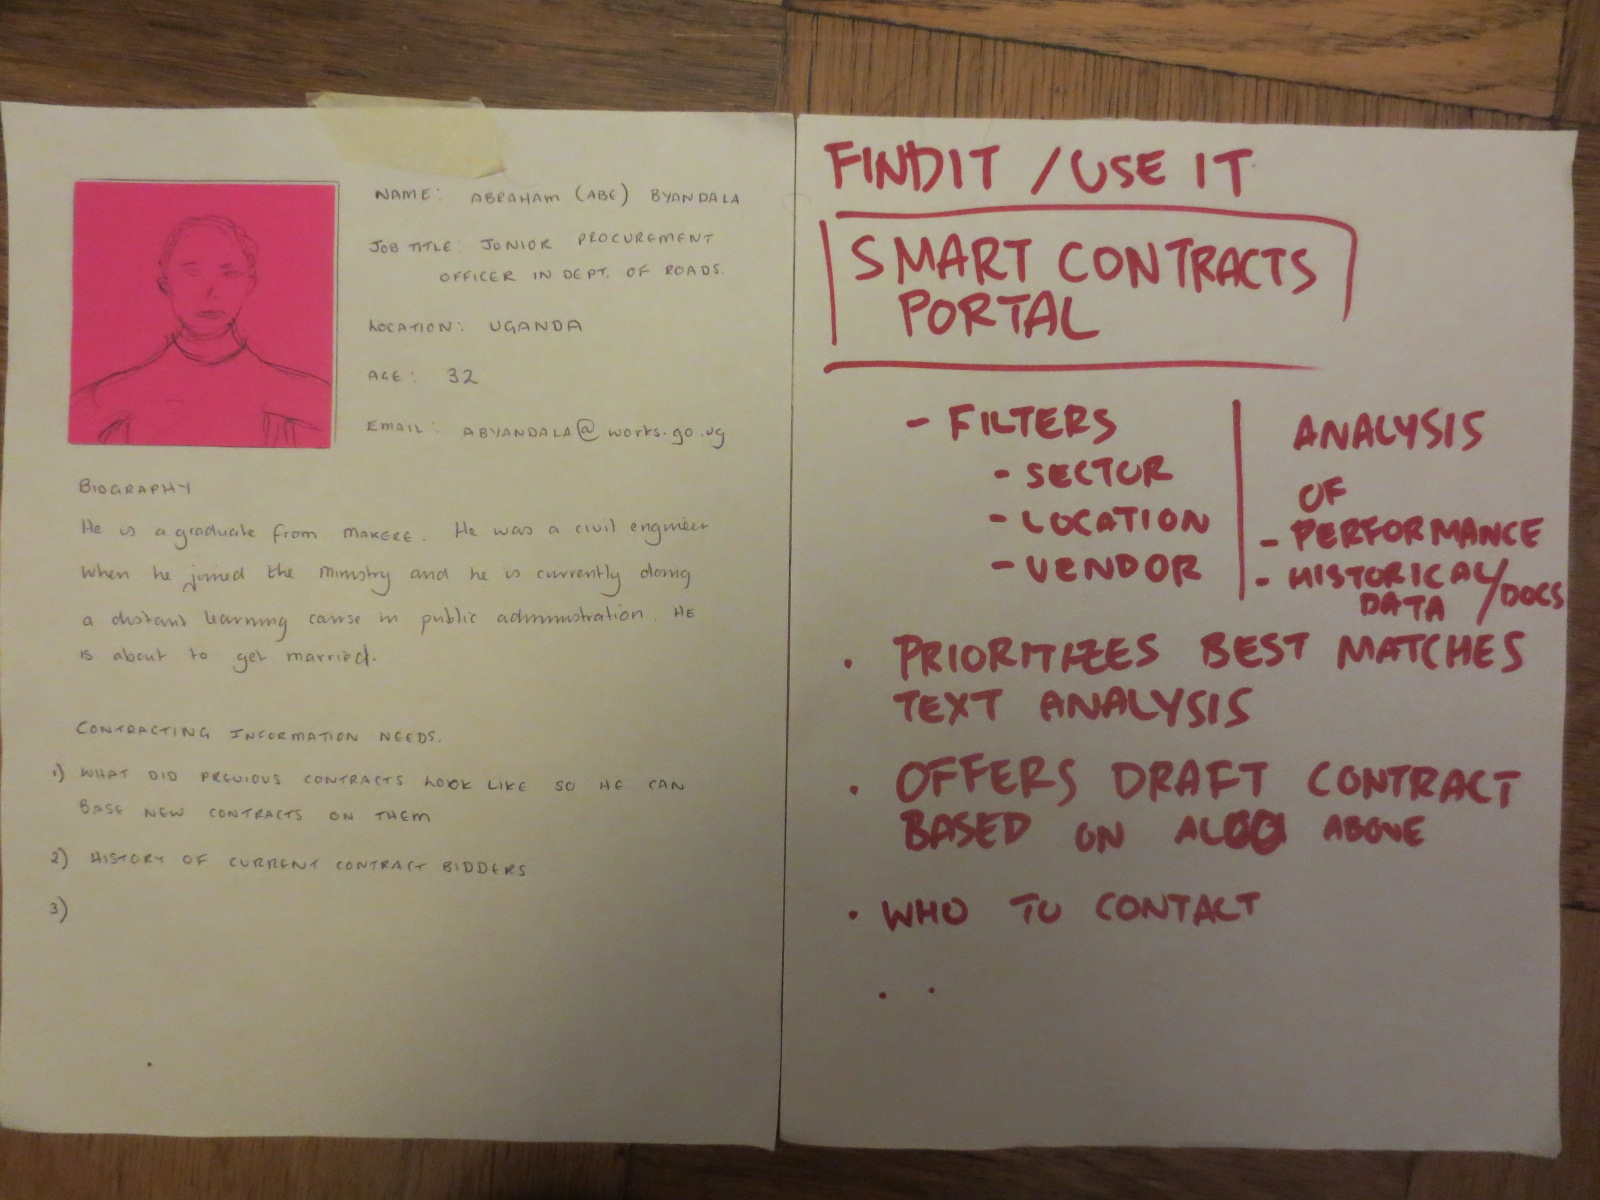 NAME: ABRAHAM (ABE) BYANDALA
JOB TITLE: JUNIOR PROCUREMENT
OFFICER IN DEPT. OF ROADS.
LOCATION: UGANDA
AGE: 32
EMAIL: ABYANDALA@works.go.ug
BIOGRAPHY
He is a graduate from MAKERE. He was a civil engineer
when he joined the Ministry and he is currently doing
a distant learning course in public administration. HE
is about to get married.
CONTRACTING INFORMATION NEEDS.
1) WHAT DID PREVIOUS CONTRACTS LOOK LIKE SO HE CAN
BASE NEW CONTRACTS ON THEM
2) HISTORY OF CURRENT CONTRACT BIDDERS
3)
FINDIT / USE IT
SMART CONTRACTS
PORTAL
- FILTERS
- SECTOR
- LOCATION
- VENDOR
ANALYSIS
OF
- PERFORMANCE
- HISTORICAL/
DATA /DOCS
• PRIORITIZES BEST MATCHES
TEXT ANALYSIS
• OFFERS DRAFT CONTRACT
BASED ON ABOVE
• WHO TO CONTACT
. .